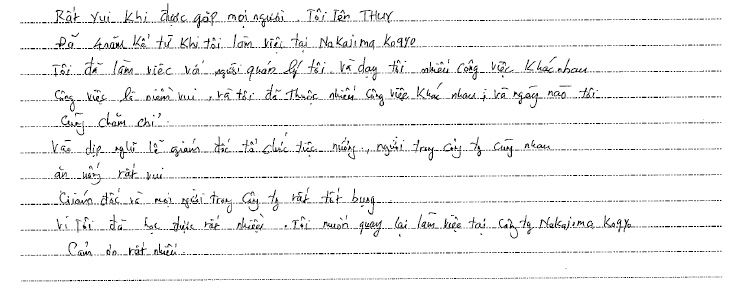 Rất vui khi được gặp mọi người. Tôi tên THUY
Đã 4 năm kể từ khi tôi làm việc tại Nakajima Kogyo
Tôi đã làm việc với người quản lý tôi và dạy tôi nhiều công việc khác nhau
Công việc là niềm vui, và tôi đã thuộc nhiều công việc khác nhau; và ngày nào tôi
cũng chăm chỉ.
Vào dịp nghỉ lễ giám đốc tổ chức tiệc nướng, người trong công ty cùng nhau
ăn uống rất vui
Giám đốc và mọi người trong công ty rất tốt bụng
Vì tôi đã học được rất nhiều. Tôi muốn quay lại làm việc tại công ty Nakajima Kogyo
Cảm ơn rất nhiều.